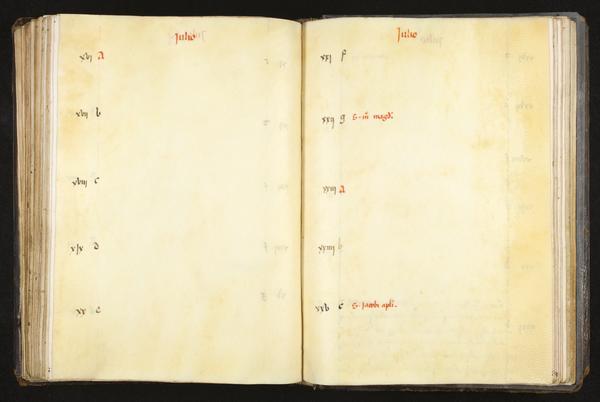 Julio
xvj A
xvij b
xviij c
xjx d
xx e
Julio
xxj f
xxij g S. m̃ magd̃.
xxiij A
xxiiij b
xxv c S. Jacobi apłi.